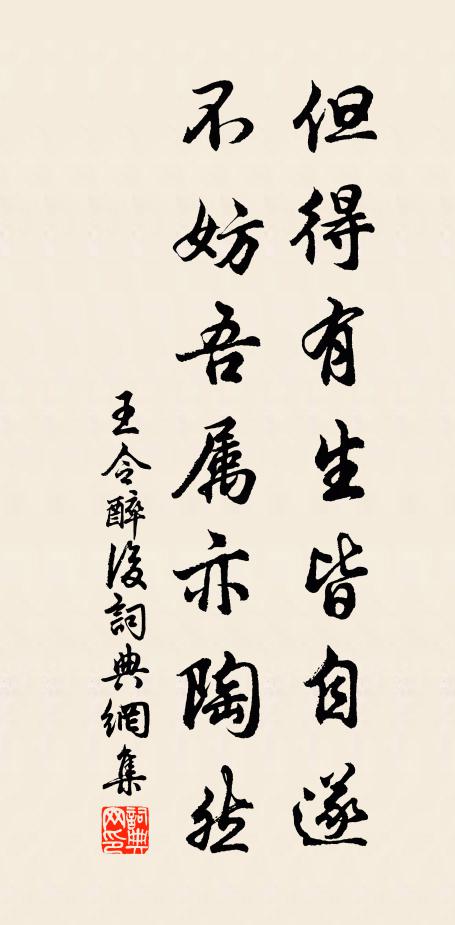 但得有生皆自遂
不妨吾属亦陶然
王令醉後詞典網集
詞典網印